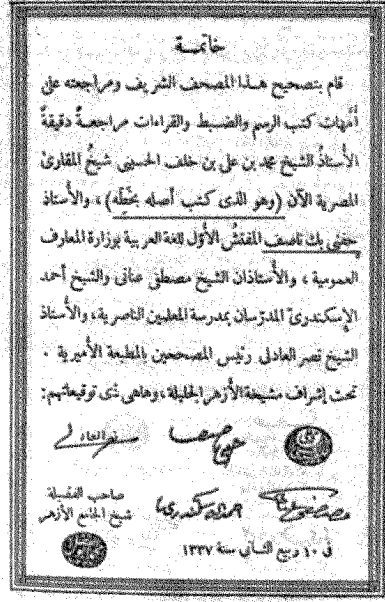 خاتمــة
قام بتصحيح هـذا المصحف الشريف ومراجعته على
أمّهات كتب الرسم والضبط والقراءات مراجعةً دقيقةً
الأستاذُ الشيخ محمد بن على بن خلف الحسينى شيخُ المقارئ
المصرية الآن (وهو الذى كتب أصله بخطِّه) ، والأستاذ
حفنى بك ناصف المفتشُ الأوّل للغة العربية بوزارة المعارف
العمومية ، والأستاذان الشيخ مصطفى عنانى والشيخ أحمد
الإسكندرىّ المدرّسان بمدرسة المعلمين الناصرية ، والأستاذ
الشيخ نصر العادلى رئيس المصححين بالمطبعة الأميرية .
تحت إشراف مشيخة الأزهر الجليلة ، وهاهى ذى توقيعاتهم :
نصر العادلى
مصطفى عنانى
احمد سكندرى
صاحب الفضيلة
شيخ الجامع الأزهر
فى ١٠ ربيع الثانى سنة ١٣٣٧